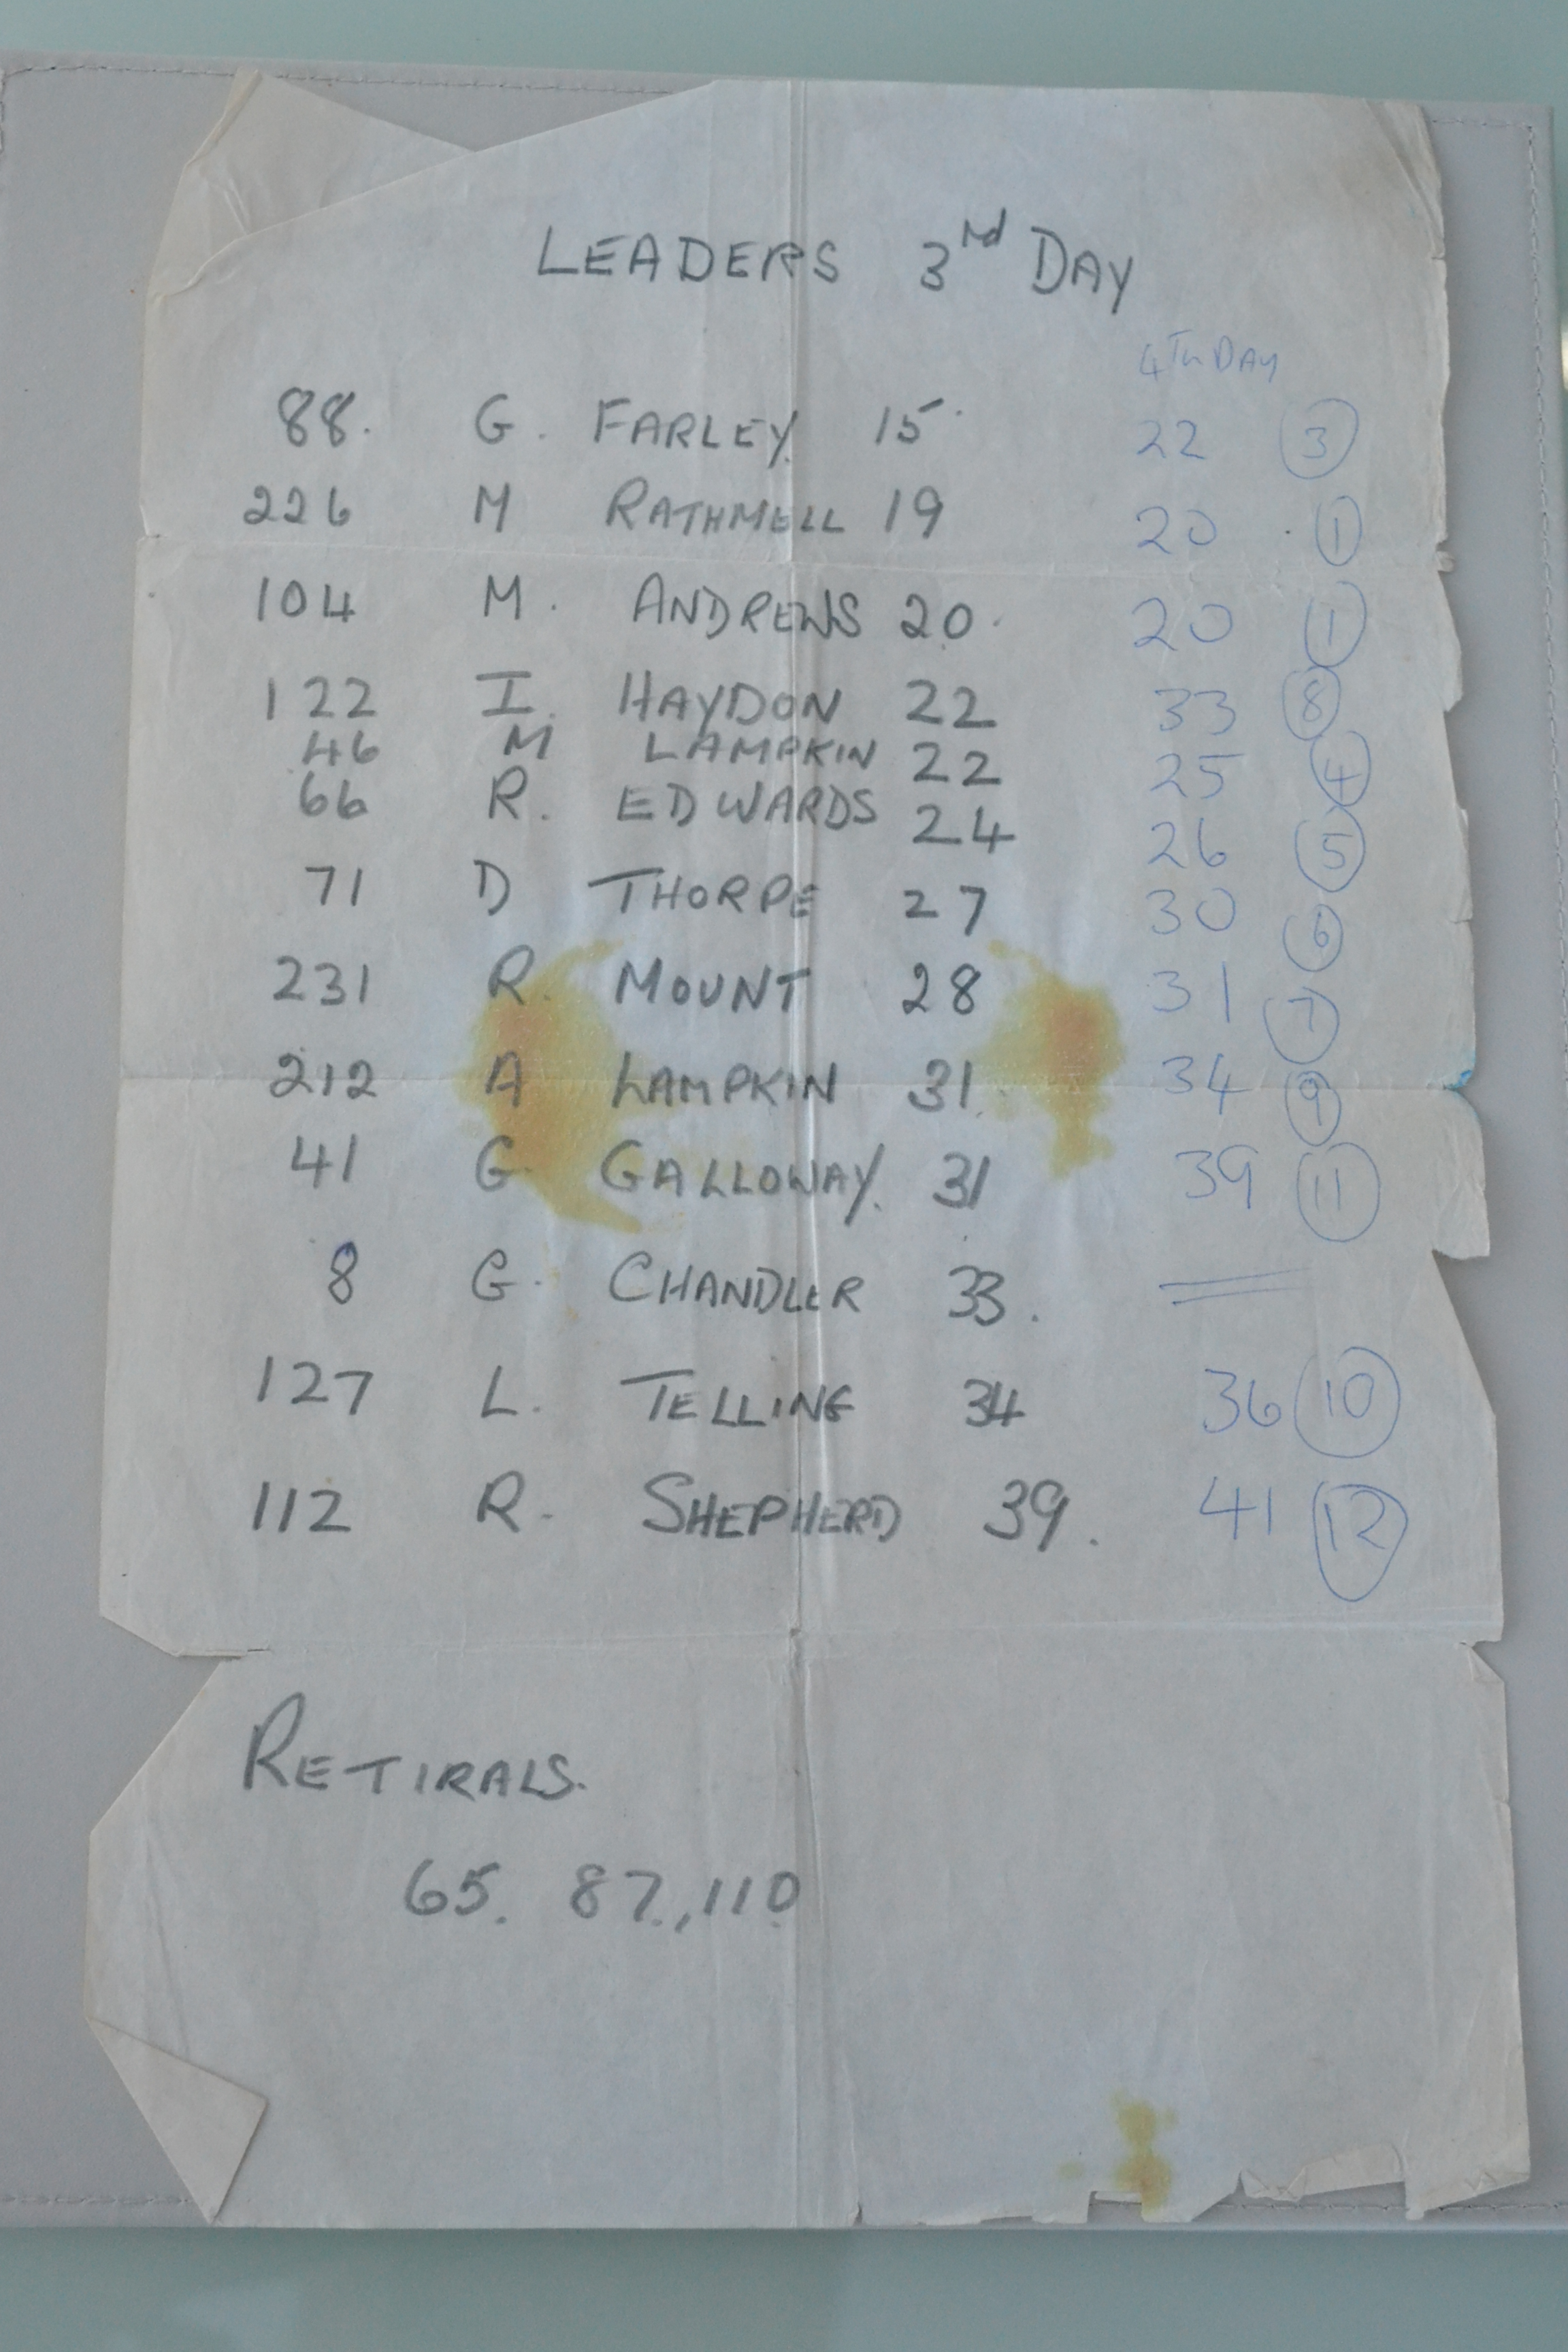 LEADERS 3rd DAY
4TH DAY
88. G. FARLEY. 15 22 3
226 M RATHMELL 19 20 1
104 M. ANDREWS 20. 20 1
122 I. HAYDON 22 33 8
46 M LAMPKIN 22 25 4
66 R. EDWARDS 24 26 5
71 D THORPE 27 30 6
231 R. MOUNT 28 31 7
212 A LAMPKIN 31. 34 9
41 G GALLOWAY. 31 39 11
8 G. CHANDLER 33.
127 L. TELLING 34 36 10
112 R. SHEPHERD 39. 41 12
RETIRALS.
65. 87., 110